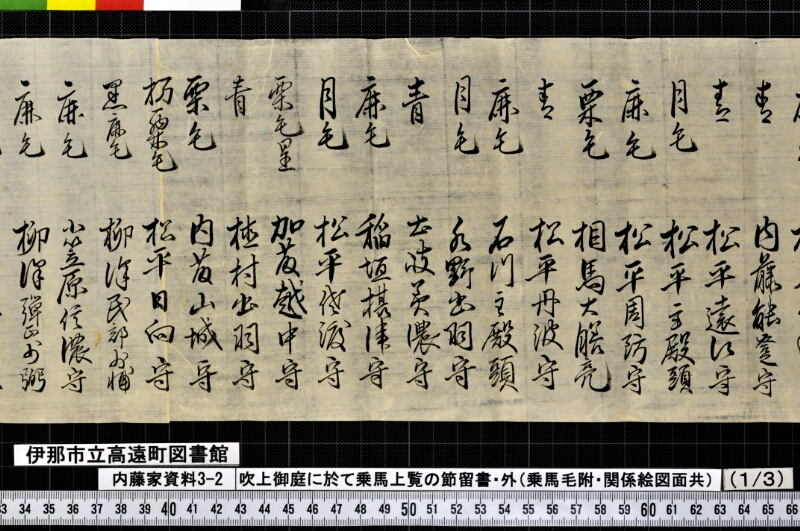 青
内藤能登守
青
松平遠江守
月毛
松平主殿頭
鹿毛
松平周防守
栗毛
相馬大膳亮
青
松平丹波守
鹿毛
石川主殿頭
月毛
水野出羽守
青
土岐美濃守
鹿毛
稲垣摂津守
月毛
松平佐渡守
栗毛星
加藤越中守
青
植村出羽守
栗毛
内藤山城守
栃栗毛
松平日向守
黒鹿毛
柳沢民部少輔
鹿毛
小笠原信濃守
鹿毛
柳沢弾正少弼
伊那市立高遠町図書館
内藤家資料3-2 吹上御庭に於て乗馬上覧の節留書・外(乗馬毛附・関係絵図面共) (1/3)
33 34 35 36 37 38 39 40 41 42 43 44 45 46 47 48 49 50 51 52 53 54 55 56 57 58 59 60 61 62 63 64 65 66